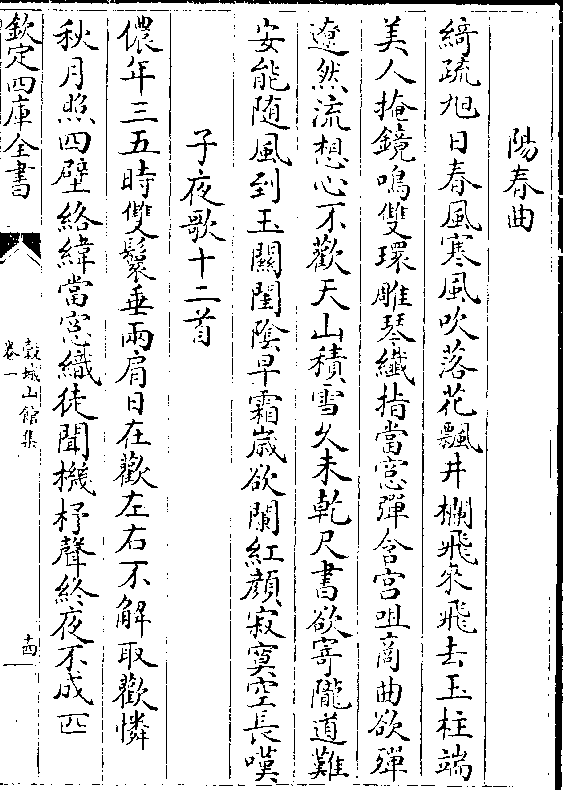 陽春曲
綺疏旭日春風寒風吹落花飄井欄飛來飛去玉柱端
美人掩鏡鳴雙環雕琴纖指當窓彈含宫咀商曲欲殫
遼然流想心不歡天山積雪久未乾尺書欲寄隴道難
安能随風到玉闗閨陰早霜嵗欲闌紅顔寂寞空長嘆
子夜歌十二首
儂年三五時雙鬟垂兩肩日在歡左右不解取歡憐
秋月照四壁絡緯當窓織徒聞機杼聲終夜不成匹
欽定四庫全書
穀城山館集
卷一
十四